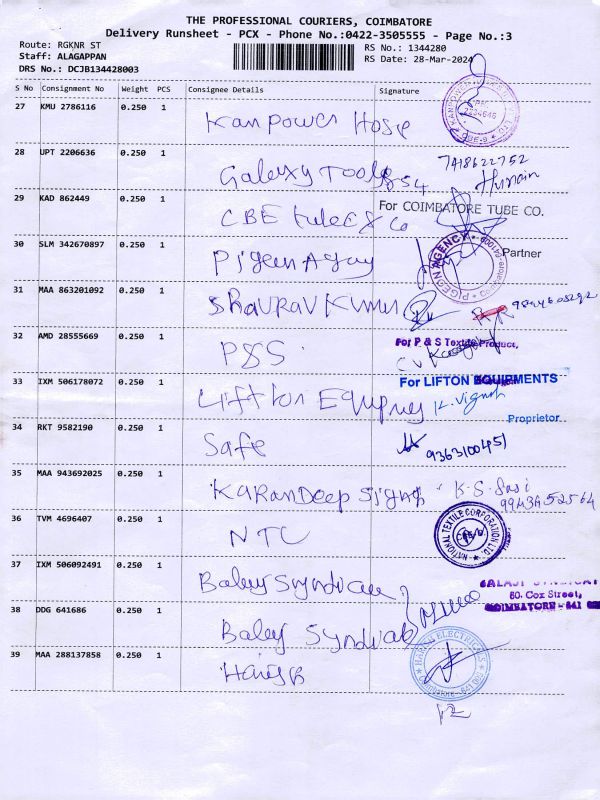 THE PROFESSIONAL COURIERS, COIMBATORE
Delivery Runsheet - PCX - Phone No.:0422-3505555 - Page No.:3
Route: RGKNR ST
RS No.: 1344280
Staff: ALAGAPPAN
RS Date: 28-Mar-2024
DRS No.: DCJB134428003
S No Consignment No Weight PCS Consignee Details Signature
27 KMU 2786116 0.250 1 Kanpower Hose
28 UPT 2206636 0.250 1 Galaxy Tools 7418622752
Husain
29 KAD 862449 0.250 1 CBE tube & Co For COIMBATORE TUBE CO.
Partner
30 SLM 342670897 0.250 1 Pigeon Agay PIGEON AGENCY
31 MAA 863201092 0.250 1 ShaURAV KUmar
32 AMD 28555669 0.250 1 P&S For P & S Textile Product,
33 IXM 506178072 0.250 1 Lifton Equipmey For LIFTON EQUIPMENTS
K. Vignesh
Proprietor
34 RKT 9582190 0.250 1 Safe 9363100451
35 MAA 943692025 0.250 1 KaRanDeep Signgh K.S. Sasi
36 TVM 4696407 0.250 1 NTC NATIONAL TEXTILE CORPORATION LTD.
37 IXM 506092491 0.250 1 Baley Syndicate BALAJI SYNDICAT
60. Cox Street,
COIMBATORE - 641
38 DDG 641686 0.250 1 Baley Syndicate
39 MAA 288137858 0.250 1 Harish HARISH ELECTRICALS